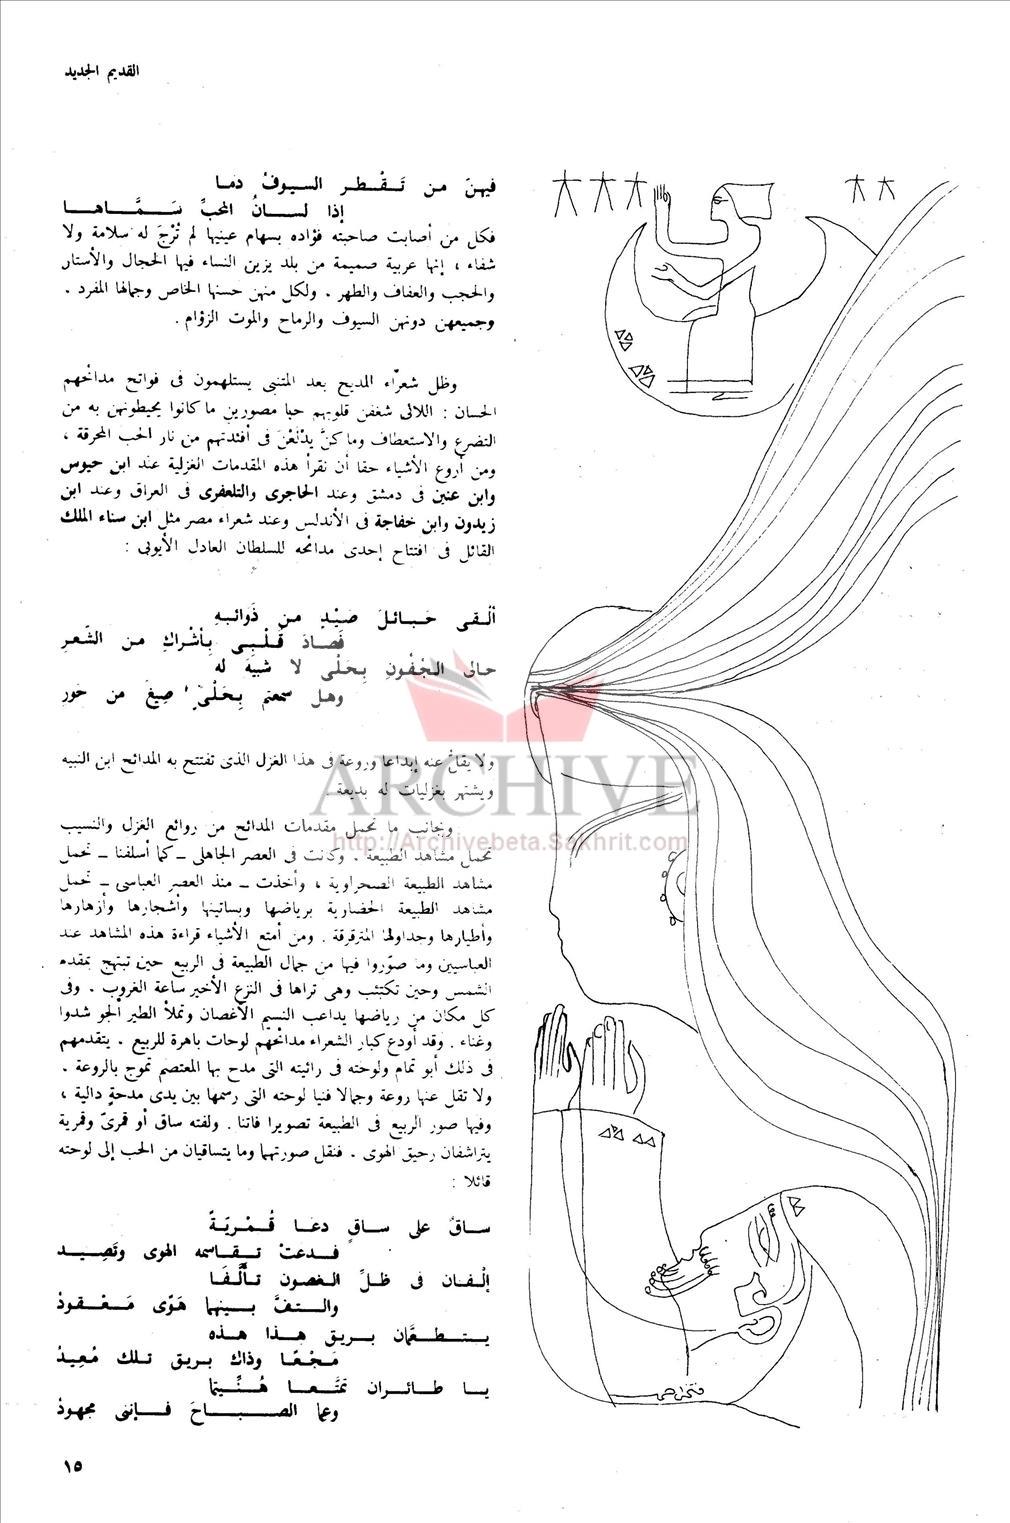 القديم الجديد
فيهنَ من تَـقْـطـر السـيـوفُ دمـا
إذا لـسـانُ المحبِّ سَـمَّـاهـا
فكل من أصابت صاحبته فؤاده بسهام عينيها لم تُرْجَ له سلامة ولا
شفاء ، إنها عربية صميمة من بلد يزين النساء فيها الحجال والأستار
والحجب والعفاف والطهر . ولكل منهن حسنها الخاص وجمالها المفرد .
وجميعهن دونهن السيوف والرماح والموت الزؤام .
وظل شعراء المديح بعد المتنبى يستلهمون فى فواتح مدائحهم
الحسان : اللائى شغفن قلوبهم حبا مصورين ما كانوا يحيطونهن به من
التضرع والاستعطاف وما كنَّ يدْلَعْنَ فى أفئدتهم من نار الحب المحرقة ،
ومن أروع الأشياء حقا أن نقرأ هذه المقدمات الغزلية عند ابن حيوس
وابن عنين فى دمشق وعند الحاجرى والتلعفرى فى العراق وعند ابن
زيدون وابن خفاجة فى الأندلس وعند شعراء مصر مثل ابن سناء الملك
القائل فى افتتاح إحدى مدائحه للسلطان العادل الأيوبى :
ألـقى حَـبـائـلَ صَـيْـدٍ مـن ذَوائـبـهِ
فَصـادَ قَـلْـبِـى بِـأشْراكِ مـن الشَّعـرِ
حالى الـجُفْونِ بِـحَلْىٍ لا شبيهَ له
وهل سمعتم بِـحَلْىٍ صِيغَ من حَورِ
ولا يقلُّ عنه إبداعا وروعة فى هذا الغزل الذى تفتتح به المدائح ابن النبيه
ويشتهر بغزليات له بديعة .
وبجانب ما تحمل مقدمات المدائح من روائع الغزل والنسيب
تحمل مشاهد الطبيعة . وكانت فى العصر الجاهلى ــ كما أسلفنا ــ تحمل
مشاهد الطبيعة الصحراوية ، وأخذت ــ منذ العصر العباسى ــ تحمل
مشاهد الطبيعة الحضارية برياضها وبساتينها وأشجارها وأزهارها
وأطيارها وجداولها المترقرقة . ومن أمتع الأشياء قراءة هذه المشاهد عند
العباسيين وما صوّروا فيها من جمال الطبيعة فى الربيع حين تبتهج بمقدمه
الشمس وحين تكتئب وهى تراها فى النزع الأخير ساعة الغروب . وفى
كل مكان من رياضها يداعب النسيم الأغصان وتملأ الطير الجو شدوا
وغناء . وقد أودع كبار الشعراء مدائحهم لوحات باهرة للربيع . يتقدمهم
فى ذلك أبو تمام ولوحته فى رائيته التى مدح بها المعتصم تموج بالروعة .
ولا تقل عنها روعة وجمالا فنيا لوحته التى رسمها بين يدى مدحةٍ دالية ،
وفيها صور الربيع فى الطبيعة تصويرا فاتنا . ولفته ساق أو قمرىّ وقمرية
يتراشفان رحيق الهوى . فنقل صورتهما وما يتساقيان من الحب إلى لوحته
قائلا :
سـاقٌ على سـاقٍ دعـا قُـمْـرِيَّـةً
فـدعتْ تـقـاسمه الهوى وتَصِـيـد
إلْـفـان فى ظـلِّ الـغصون تـألَّـفَـا
والـتـفَّ بـينهما هَوًى مَـعْـقـودُ
يـتـطـعَّمان بـريق هـذا هـذه
مَـجْـعًـا وذاك بـريق تـلك مُعِيدُ
يـا طـائـران تمتَّـعـا هُـنِّـيتما
وعِما الصـبـاحَ فـإننى مجهودُ
١٥
ARCHIVE
http://Archivebeta.Sakhrit.com